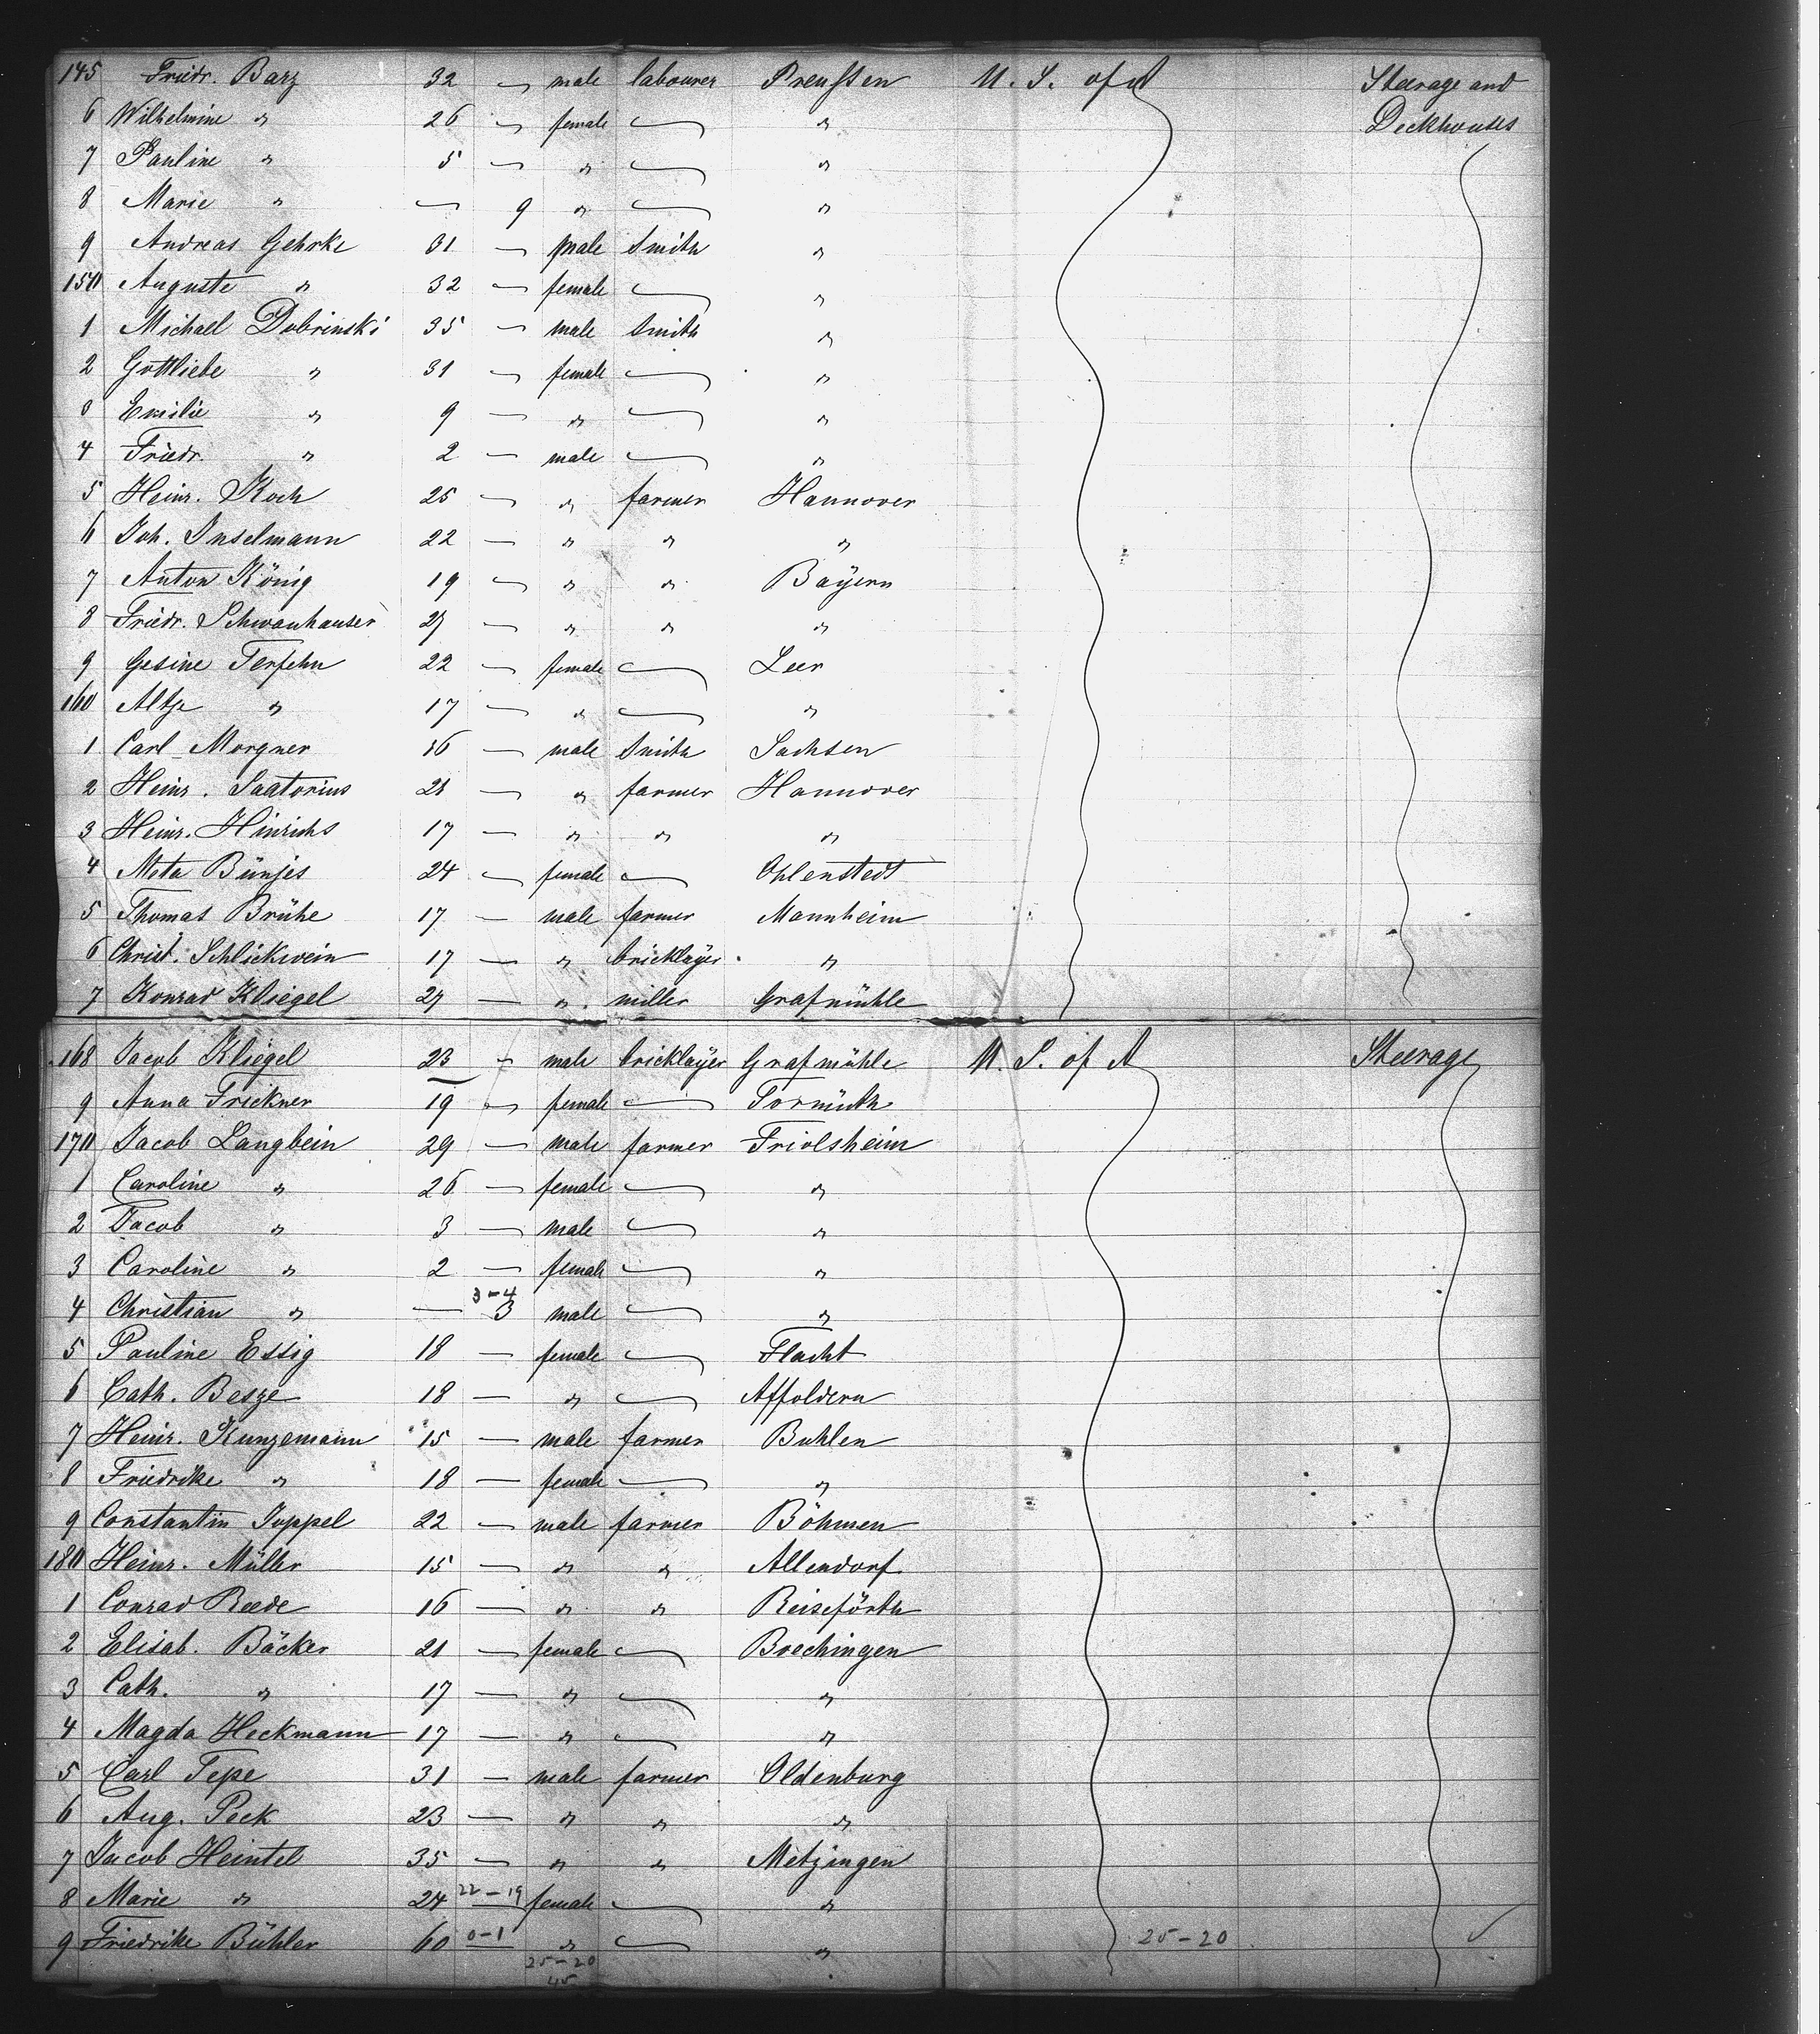 145 Friedr. Barz 32 — male labourer Preussen U. S. of A Steerage and
6 Wilhelmine " 26 — female — " Deckhouses
7 Pauline " 5 — " — "
8 Marie " — 9 " — "
9 Andreas Gehrke 31 — male Smith "
150 Auguste " 32 — female — "
1 Michael Dobrinski 35 — male Smith "
2 Gottliebe " 31 — female — "
3 Emilie " 9 — " — "
4 Friedr. " 2 — male — "
5 Heinr. Koch 25 — " farmer Hannover
6 Joh. Inselmann 22 — " " "
7 Anton König 19 — " " Bayern
8 Friedr. Schwanhauser 27 — " " "
9 Gesine Terfehn 22 — female — Leer
160 Altje " 17 — " — "
1 Carl Morgner 16 — male Smith Sachsen
2 Heinr. Saatorius 21 — " farmer Hannover
3 Heinr. Hinrichs 17 — " " "
4 Meta Bünjes 24 — female — Ohlenstedt
5 Thomas Brühe 17 — male farmer Mannheim
6 Christ. Schlickwein 17 — " bricklayer "
7 Konrad Kliegel 27 — " miller Grafmühle
168 Jacob Kliegel 23 — male bricklayer Grafmühle U. S. of A Steerage
9 Anna Frickner 19 — female —
170 Jacob Langbein 29 — male farmer Friolsheim
1 Caroline " 26 — female — "
2 Jacob " 3 — male — "
3 Caroline " 2 — female — "
3-4
4 Christian " — 3 male — "
5 Pauline Essig 18 — female — Flacht
6 Cath. Besze 18 — " — Affoldern
7 Heinr. Kunzemann 15 — male farmer Buhlen
8 Friedrike " 18 — female — "
9 Constantin Juppel 22 — male farmer Böhmen
180 Heinr. Müller 15 — " " Allendorf
1 Conrad Reede 16 — " " Reiseförth
2 Elisab. Bäcker 21 — female — Brechingen
3 Cath. " 17 — " — "
4 Magda Heckmann 17 — " — "
5 Carl Tepe 31 — male farmer Oldenburg
6 Aug. Peek 23 — " " "
7 Jacob Heintel 35 — " " Metzingen
8 Marie " 24 22-19 female — "
9 Friedrike Bühler 60 0-1 " — " 25-20
25-20
45